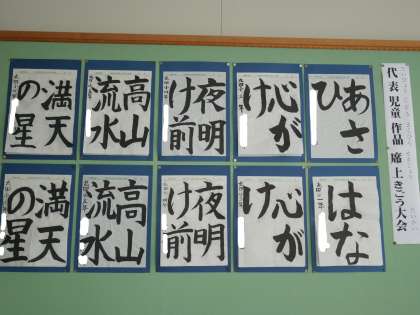 代表児童作品 席上きごう大会
あさ
ひ
心が
け
夜明
け前
高山
流水
満天
の星
はな
心が
け
夜明
け前
高山
流水
満天
の星